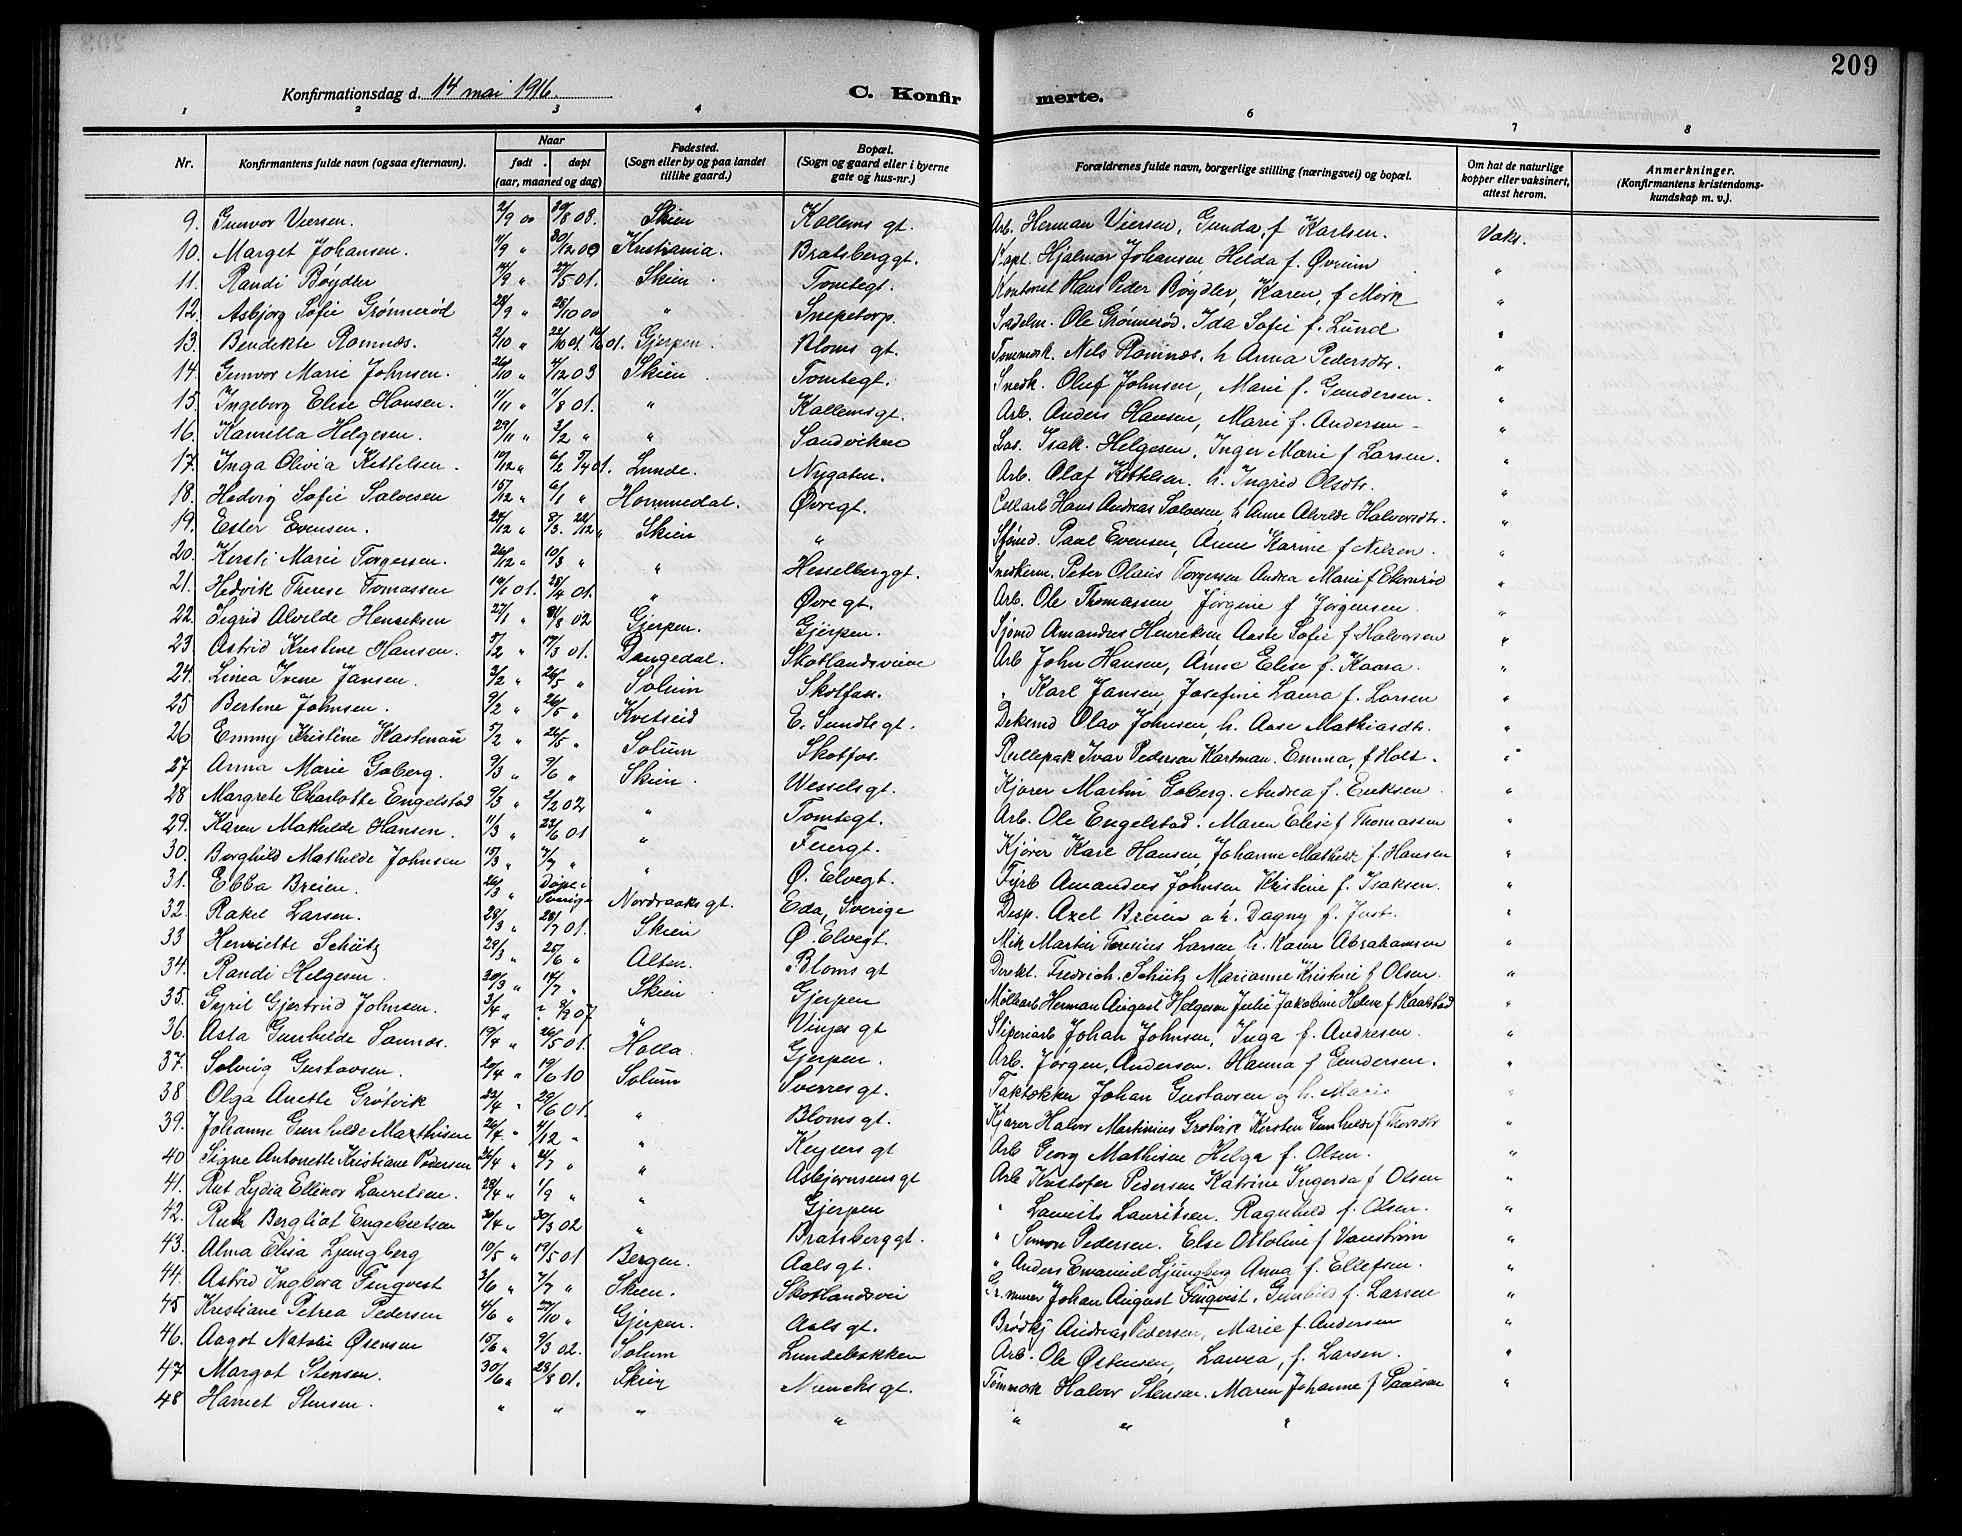 209
Konfirmationsdag d. 14 mai 1916. C. Konfirmerte.
1 2 3 4 6 7 8
Nr. Konfirmantens fulde navn (ogsaa efternavn). Naar født døpt (aar, maaned og dag) Fødested. (Sogn eller by og paa landet tillike gaard.) Bopæl. (Sogn og gaard eller i byerne gate og hus-nr.) Forældrenes fulde navn, borgerlige stilling (næringsvei) og bopæl. Om hat de naturlige kopper eller vaksinert, attest herom. Anmerkninger. (Konfirmantens kristendomskundskap m. v.).
9. Gunvor Viersen. 2/9 00 30/8 08. Skien Kallems gt. Arb. Herman Viersen, Gunda, f Karlsen. Vaks.
10. Marget Johansen. 11/9 " 30/12 00 Kristiania. Bratsberggt. Kapt. Hjalmar Johansen Helda f. Øvrum "
11. Randi Bøydler 14/9 " 27/5 01. Skien Tomtegt. Kontorist Hans Peder Bøydler, Karen, f Mørk "
12. Asbjørg Sofie Grønnerød 28/9 " 28/10 00 " Snepetorp. Sadelm. Ole Grønnerød. Ida Sofie f. Lund "
13. Bendikte Romnæs. 2/10 " 22/10 01. Gjerpen. Bloms gt. Tømmerh. Nils Romnæs. h Anna Pedersdtr. "
14. Gunvor Marie Johnsen. 26/10 " 4/12 03 Skien Tomtegt. Snedk. Oluf Johnsen, Marie f. Gundersen. "
15. Ingeborg Elise Hansen. 11/11 " 11/8 01. " Kallemsgt. Arb. Anders Hansen, Marie f. Andersen "
16. Kamilla Helgesen. 29/11 " 3/2 " " Sandviken Las. Isak. Helgesen, Inger Marie f Larsen. "
17. Inga Olivia Kettelsen. 10/12 " 6/2 5/4 01. Lunde. Nygaten. Arb. Olaf Kettelsen h. Ingrid Olsdtr. "
18. Hedvig Sofie Salvesen 15/12 " 6/1 " Hommedal. Øvregt. Cellarb Hans Andreas Salvesen, h Anne Alvilde Halvorsdtr. "
19. Ester Evensen. 24/12 " 8/3. 22/12 " Skien " Sjømd. Paul Evensen, Anne Karine f Nilsen. "
20. Kersti Marie Torgersen. 26/12 " 10/3 " " Hesselberggt. Snedkerm. Peter Olaus Torgersen Andrea Marie f "
21. Hedvik Therese Tomassen 16/1 01. 28/4 01. " Øvregt. Arb. Ole Thomassen, Jørgine f Jørgensen. "
22. Sigrid Alvilde Henriksen 27/1 " 31/8 02 Gjerpen. Gjerpen. Sjømd Amandus Henriksen Aaste Sofie f Halvorsen "
23. Astrid Kristine Hansen. 5/2 " 17/3 01. Dangedal. Skotlandsveien Arb John Hansen, Anne Elise f. Kaasa. "
24. Linea Irene Jansen. 3/2 " 26/5 " Solum Skotfos. " Karl Jansen, Josefine Laura f. Larsen "
25. Bertine Johnsen. 9/2 " 26/5 " Kvitseid E. Sundts gt. Olav Johnsen, h. Aase Mathiasdtr. "
26 Emmy Kristine 5/2 " 26/5 " Solum Skotfos. Rullepak Ivar Pedersen Kartman. Emma, f Holt. "
27 Anna Marie Goberg. 9/3 " 9/6 " Skien. Wesselsgt. Kjører Martin Goberg. Andrea f. Eriksen "
28 Margrete Charlotte Engelstad 9/3 " 2/2 02 " Tomtegt. Arb. Ole Engelstad. Maren Elise f Thomassen "
29. Karen Mathilde Hansen. 11/3 " 23/6 01 " Feiergt. Kjører Karl Hansen, Johanne Mathilde f. Hansen "
30. Borghild Mathilde Johnsen 15/3 " 7/7 " " Ø. Elvegt. Fyrb Amandus Johnsen Kristine f. Isaksen. "
31. Ebba Breien. 26/3 " Døpt i Sverige Nordraaks gt. Eda, Sverige Desp. Axel Breien o h. Dagny f. Just. "
32. Rakel Larsen. 28/3 " 28/7 01. Skien Ø. Elvegt. Martin Larsen h. Karen Abrahamsen "
33 Henriette Schütz 29/3 " 25/6 " Alten. Bloms gt Direkt. Fredrich. Schütz Marianne Kristine f Olsen. "
34. Randi Helgesen. 30/3 " 14/7 " Skien Gjerpen Møllearb Herman August Helgesen Julie Jakobine Helene f Kaalstad "
35. Gyril Gjertrud Johnsen. 3/4 " ? 8/9 07 " Vinjes gt Sliperiarb Johan Johnsen, Inga f. Andresen. "
36. Asta Gunhilde Sannæs. 19/4 " 26/5 01. Holla. Gjerpen. Arb. Jørgen, Andersen. Hanna f Gundersen. "
37. Solveig Gustavsen. 20/4 " 19/6 10 Solum Sverresgt. Taktækker Johan Gustavsen og h. Marie "
38 Olga Anette Grøtvik 22/4 " 29/6 01. " Bloms gt. Kjører Halvor Martinius Grøtvik Kirsten Gunhilde f Thorsdtr "
39. Johanne Gunhilde Marthisen 26/4 " 4/12 " " Keysers gt Arb Georg Mathisen Helga f. Olsen. "
40. Signe Antonette Kristiane Pedersen 24/4 " 21/7 " " Asbjørnsensgt Arb Kristofer Pedersen Katrine Ingerda f Olsen "
41. Rut Lydia Ellinor Lauritsen. 28/4 " 1/9 " " Gjerpen " Laurits Lauritsen. Ragnhild f. Olsen. "
42. Ruth Bergliot Engebretsen 30/4 " 30/3 02 " Bratsberggt. " Simon Pedersen. Else Ottoline f Vanstrøm "
43. Alma Elisa Ljungberg 10/5 " 19/5 01 Bergen. Aalsgt. " Anders Emanuel Ljungberg Anna f. Ellefsen. "
44. Astrid Ingbora Finqvest 3/6 " 7/7 " Skien. Skotlandsvei Gr. murer Johan August Finqvest. Gunhild f. Larsen "
45 Kristiane Petrea Pedersen 4/6 " 27/10 " Gjerpen. Aals gt. Brødkj Andreas Pedersen, Marie f. Andersen "
46. Aagot Natalie Østensen 15/6 " 9/3 02. Solum Lundebakken Arb. Ole Østensen, Laura, f. Larsen. "
47 Margot Stensen. 30/6 " 28/8 01. Skien Muncks gt. Tømmerh Halvor Stensen. Maren Johanne f Paulsen "
48 Harriet Stensen. " " " " " " "